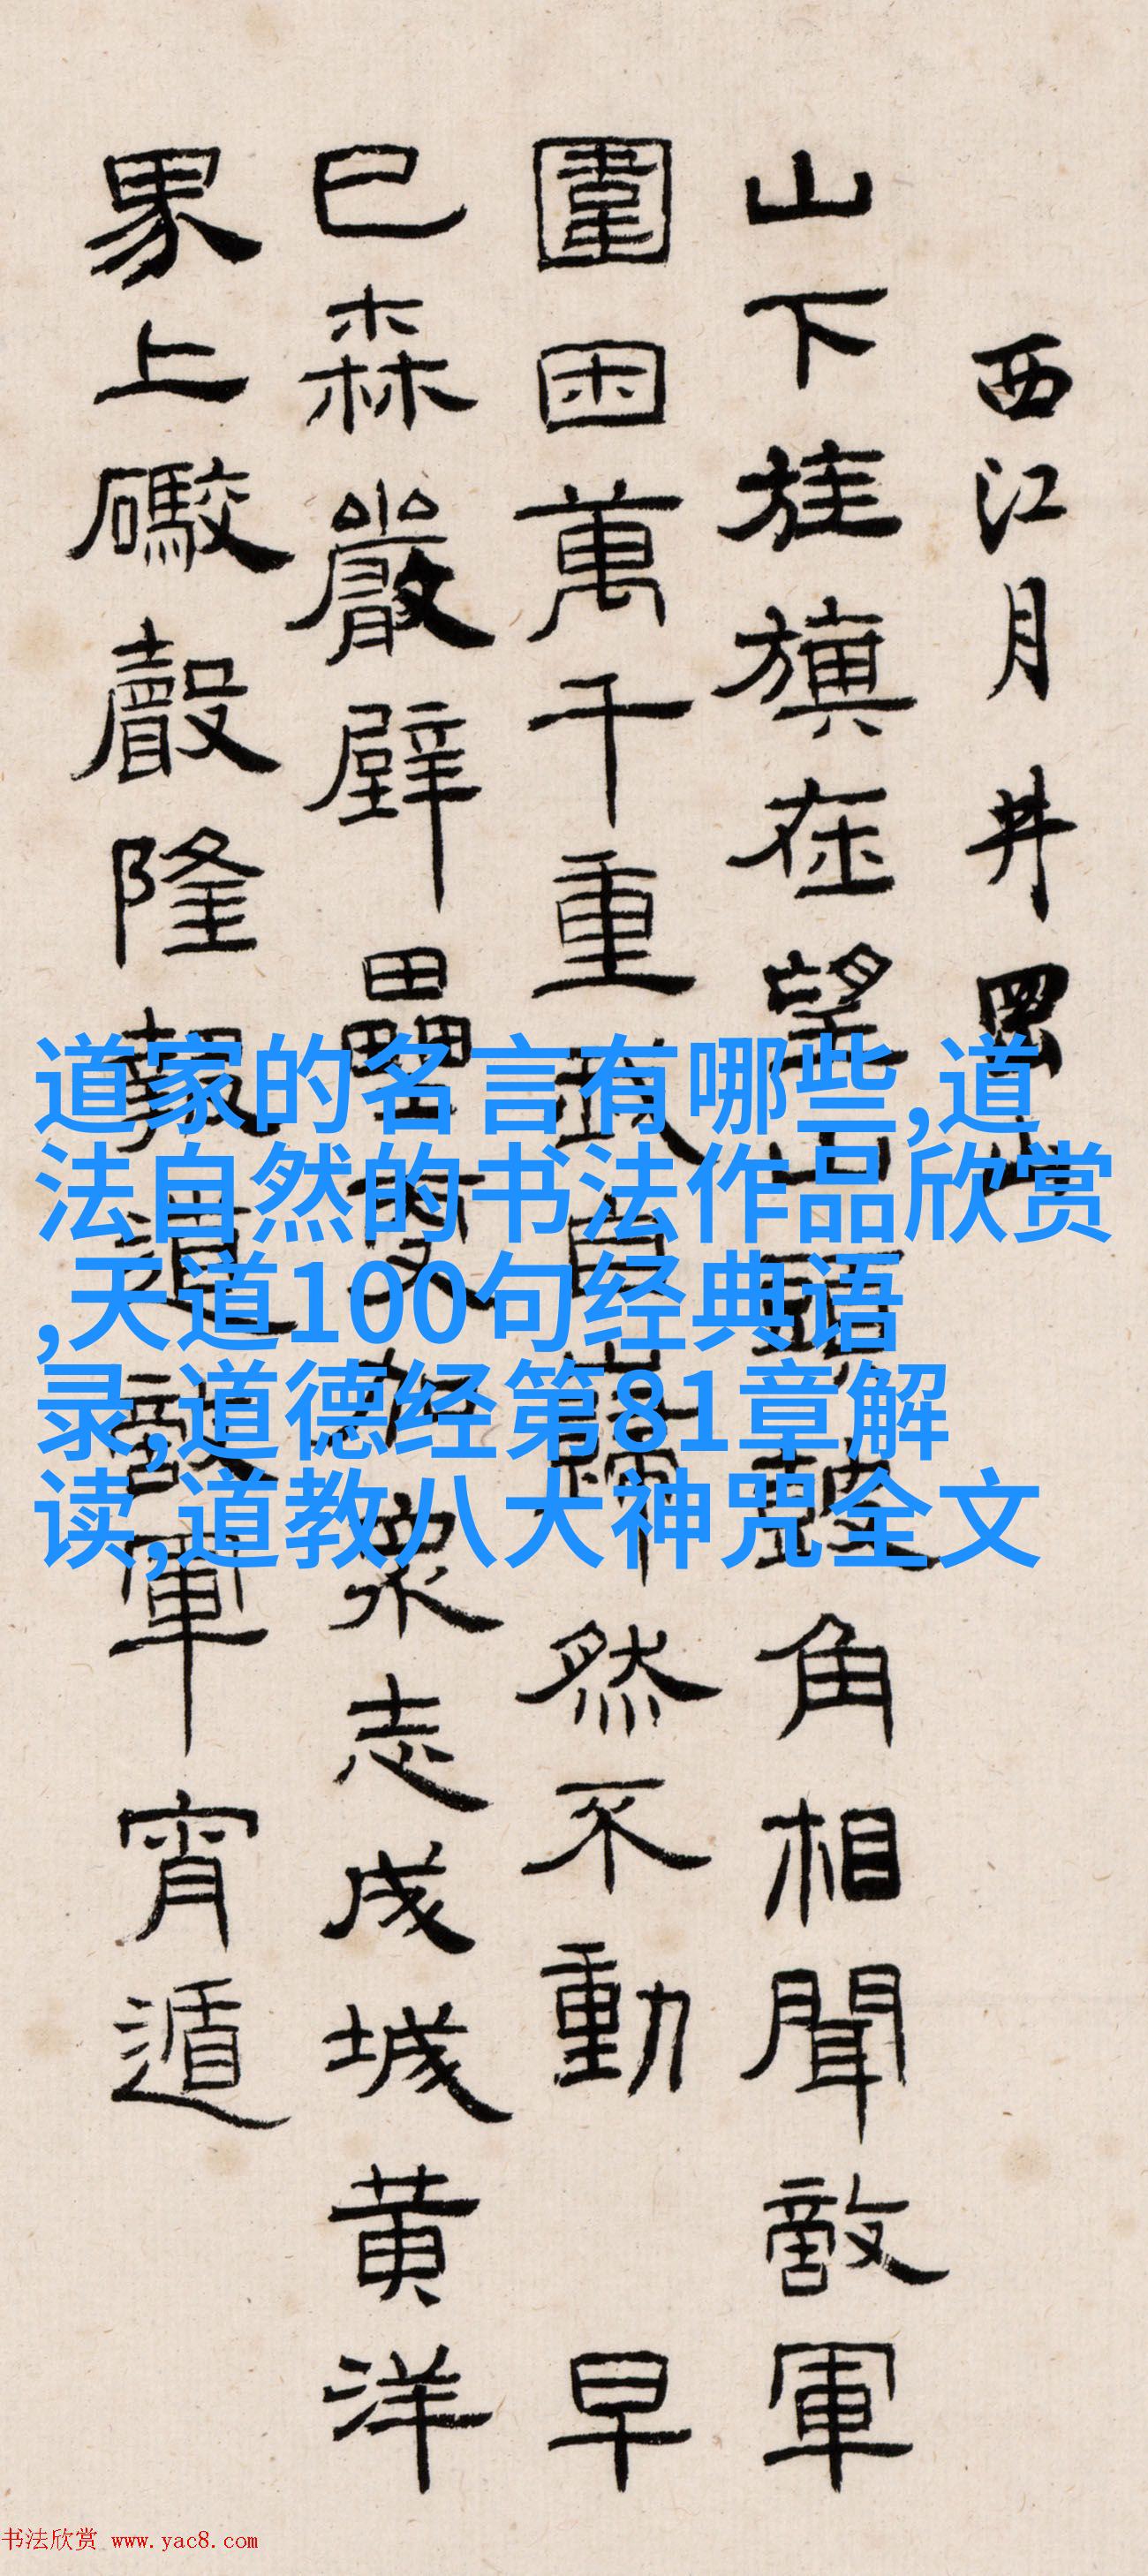 西江月 井岡山
山下旌旗在望山頭鼓角相聞敵軍
圍困萬千重我自巋然不動 早
已森嚴壁壘更加衆志成城黃洋
界上礮聲隆報道敵軍宵遁
道家的名言有哪些,道
法自然的书法作品欣赏
,天道100句经典语
录,道德经第81章解
读,道教八大神咒全文
书法欣赏 www.yac8.com